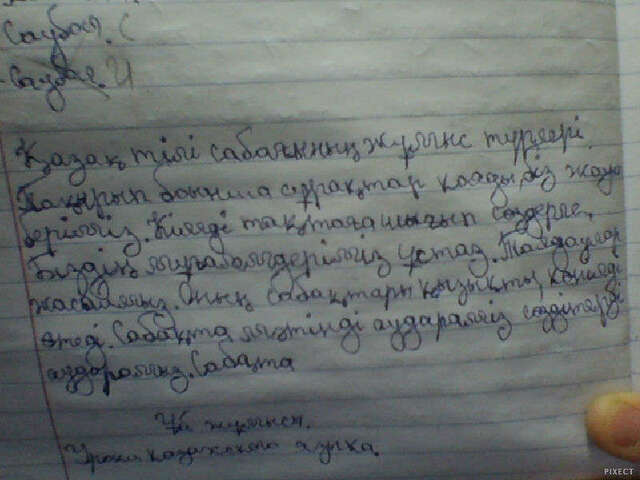 Саубол. С
Саубол. И
Қазақ тілі сабағының жұмыс түрлері.
Тақырып бойынша сұрақтар қояды, біз жауап
береміз. Келеді тақтаға шығып сөздерге,
біздің мұғалімдеріміз ұстаз. Талдаулар
жасаймыз. Оның сабақтары қызықты, көңілді
өтеді. Сабақта мәтінді аударамыз сөздітерді
аударамыз. Сабақта
Үй жұмысы.
Уроки казахского языка.
PIXECT